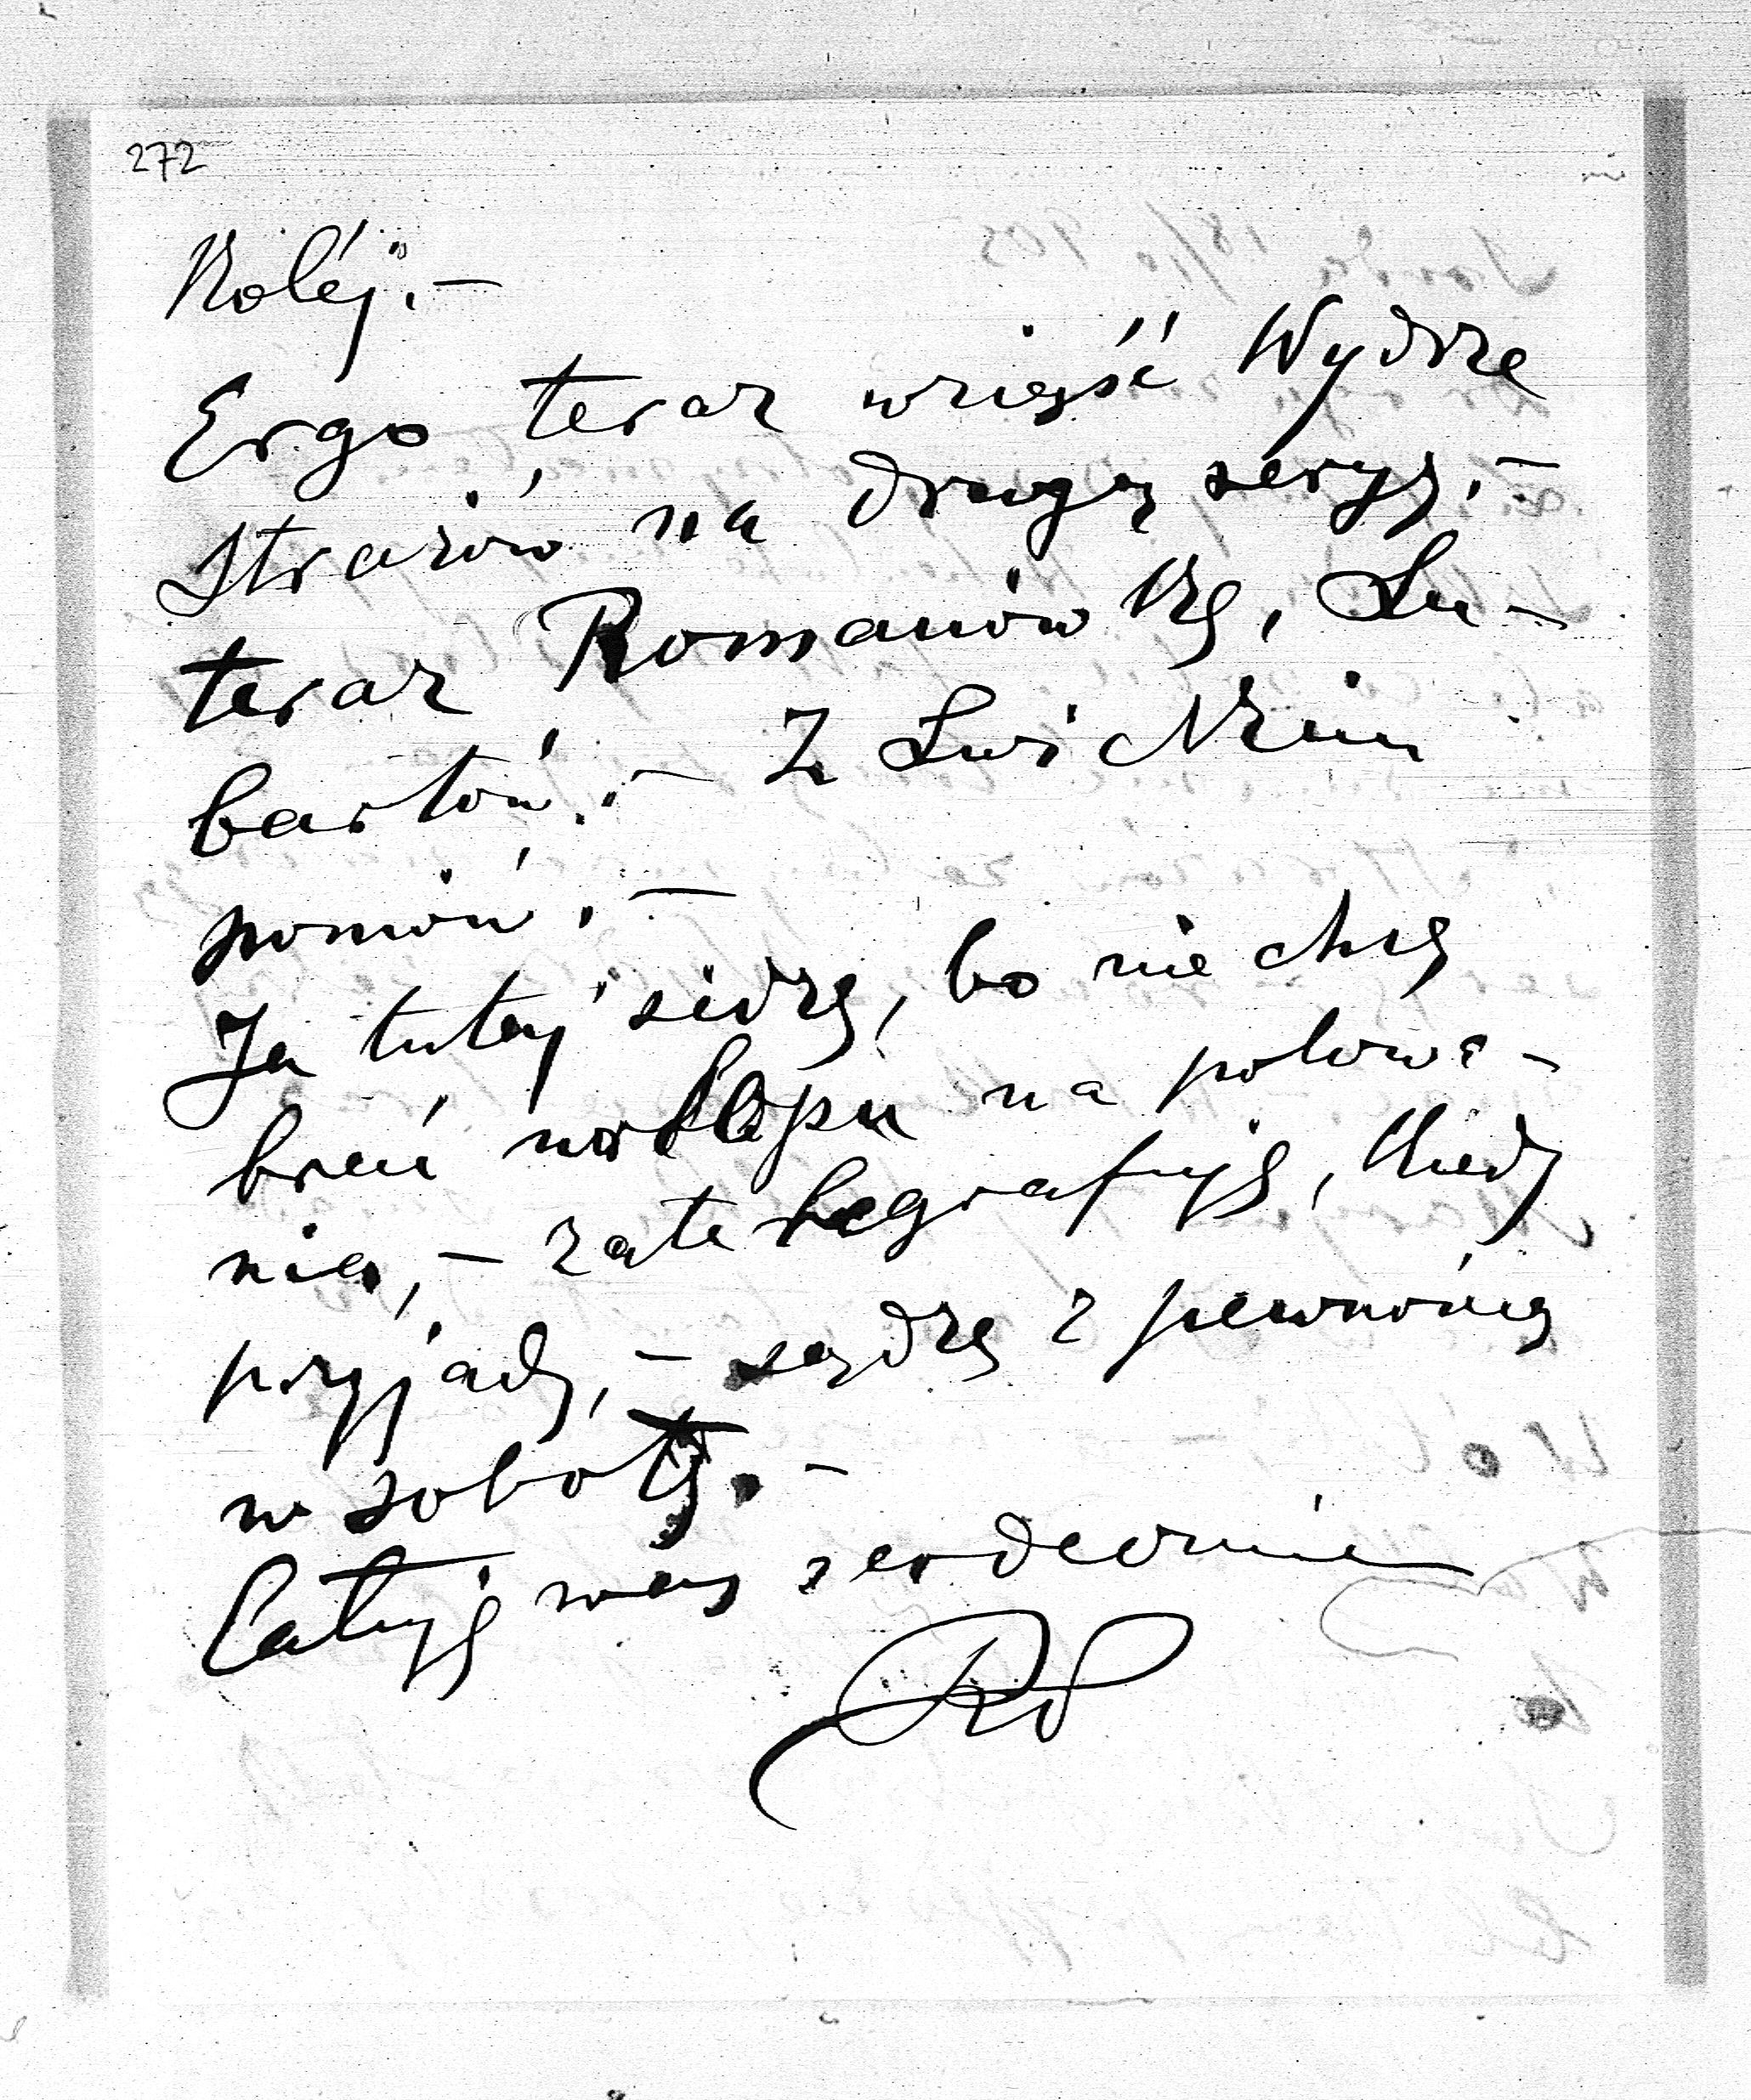 272
Koléj. –
Ergo teraz wziąść Wydrze
Strażów na drugą seryę. –
teraz Romanówkę, Lu-
bartów. – Z Lwickim
pomów. –
Ja tutaj siedzę, bo nie chcę
brać urlopu na polowa-
nia, – zatelegrafuję, kiedy
przyjadę, – sądzę z pewnością
w sobotę. –
Całuję was serdecznie